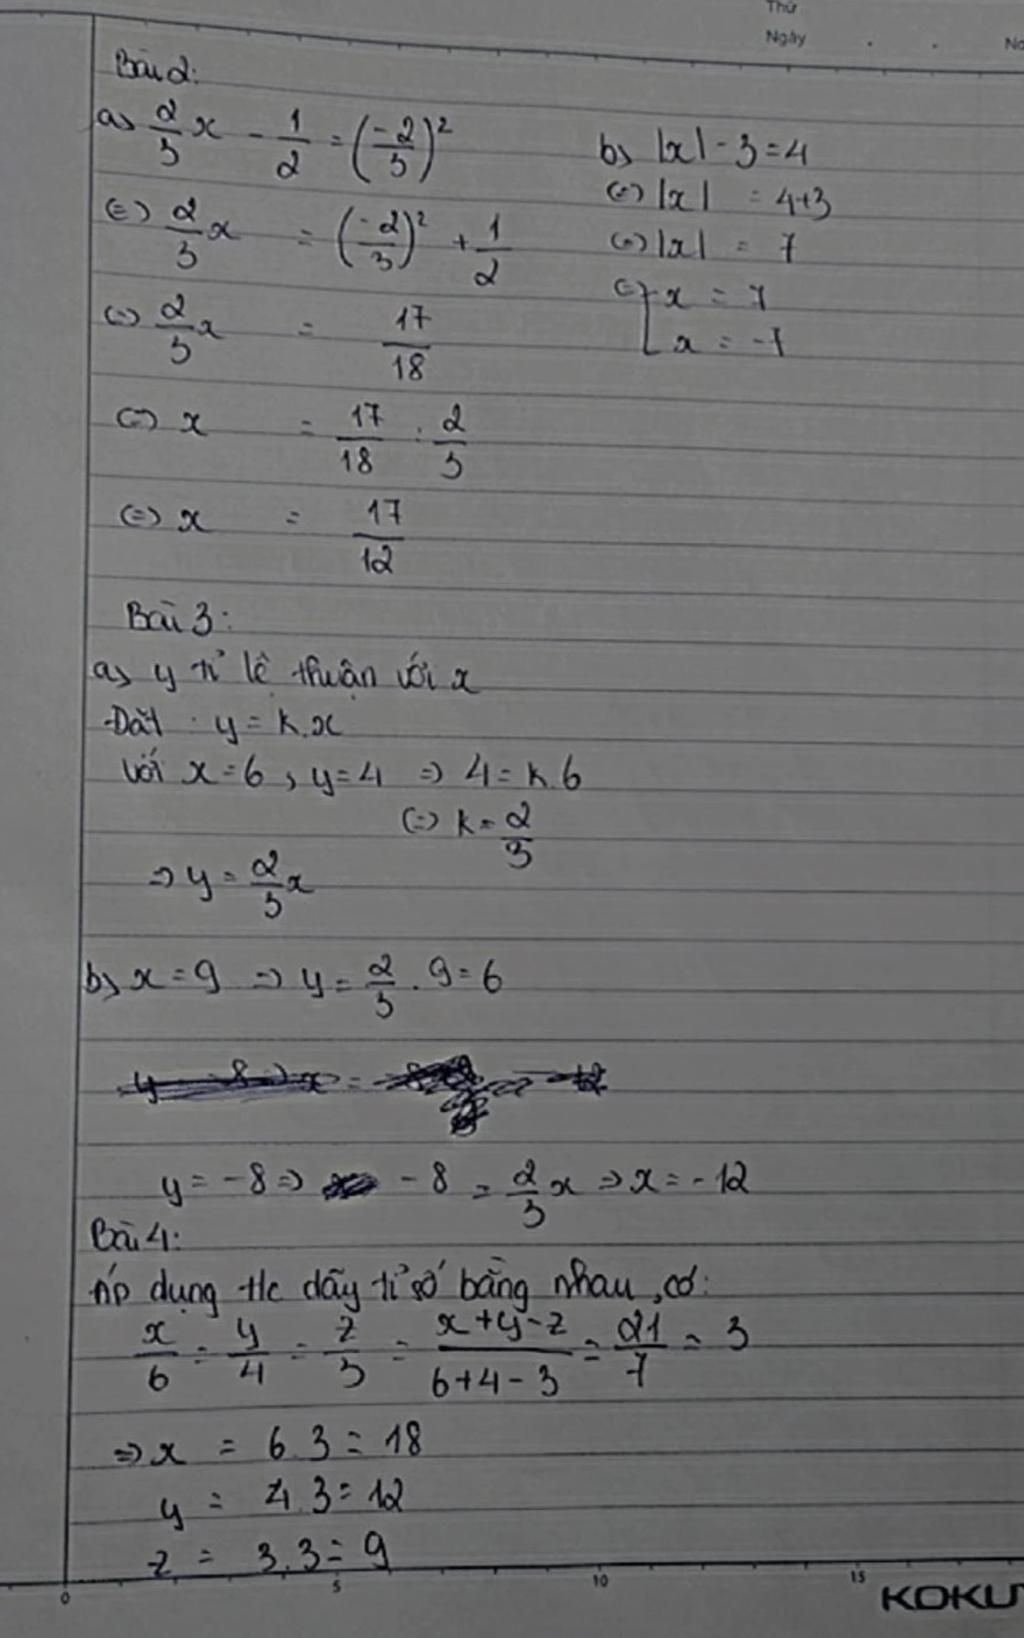 Thứ
Ngày . . No
Bài 2:
a) 2/3 x - 1/2 = (-2/3)²
(=) 2/3 x = (-2/3)² + 1/2
(=) 2/3 x = 17/18
(=) x = 17/18 : 2/3
(=) x = 17/12
b) |x| - 3 = 4
(=) |x| = 4+3
(=) |x| = 7
(=) [ x = 7
x = -7
Bài 3:
a) y tỉ lệ thuận với x
Đặt y = k.x
Với x = 6, y = 4 => 4 = k.6
(=) k = 2/3
=> y = 2/3 x
b) x = 9 => y = 2/3 . 9 = 6
y = -8 => -8 = 2/3 x => x = -12
Bài 4:
Áp dụng t/c dãy tỉ số bằng nhau, có:
x/6 = y/4 = z/3 = x+y-z/6+4-3 = 21/7 = 3
=> x = 6.3 = 18
y = 4.3 = 12
z = 3.3 = 9
0 5 10 15 KOKU